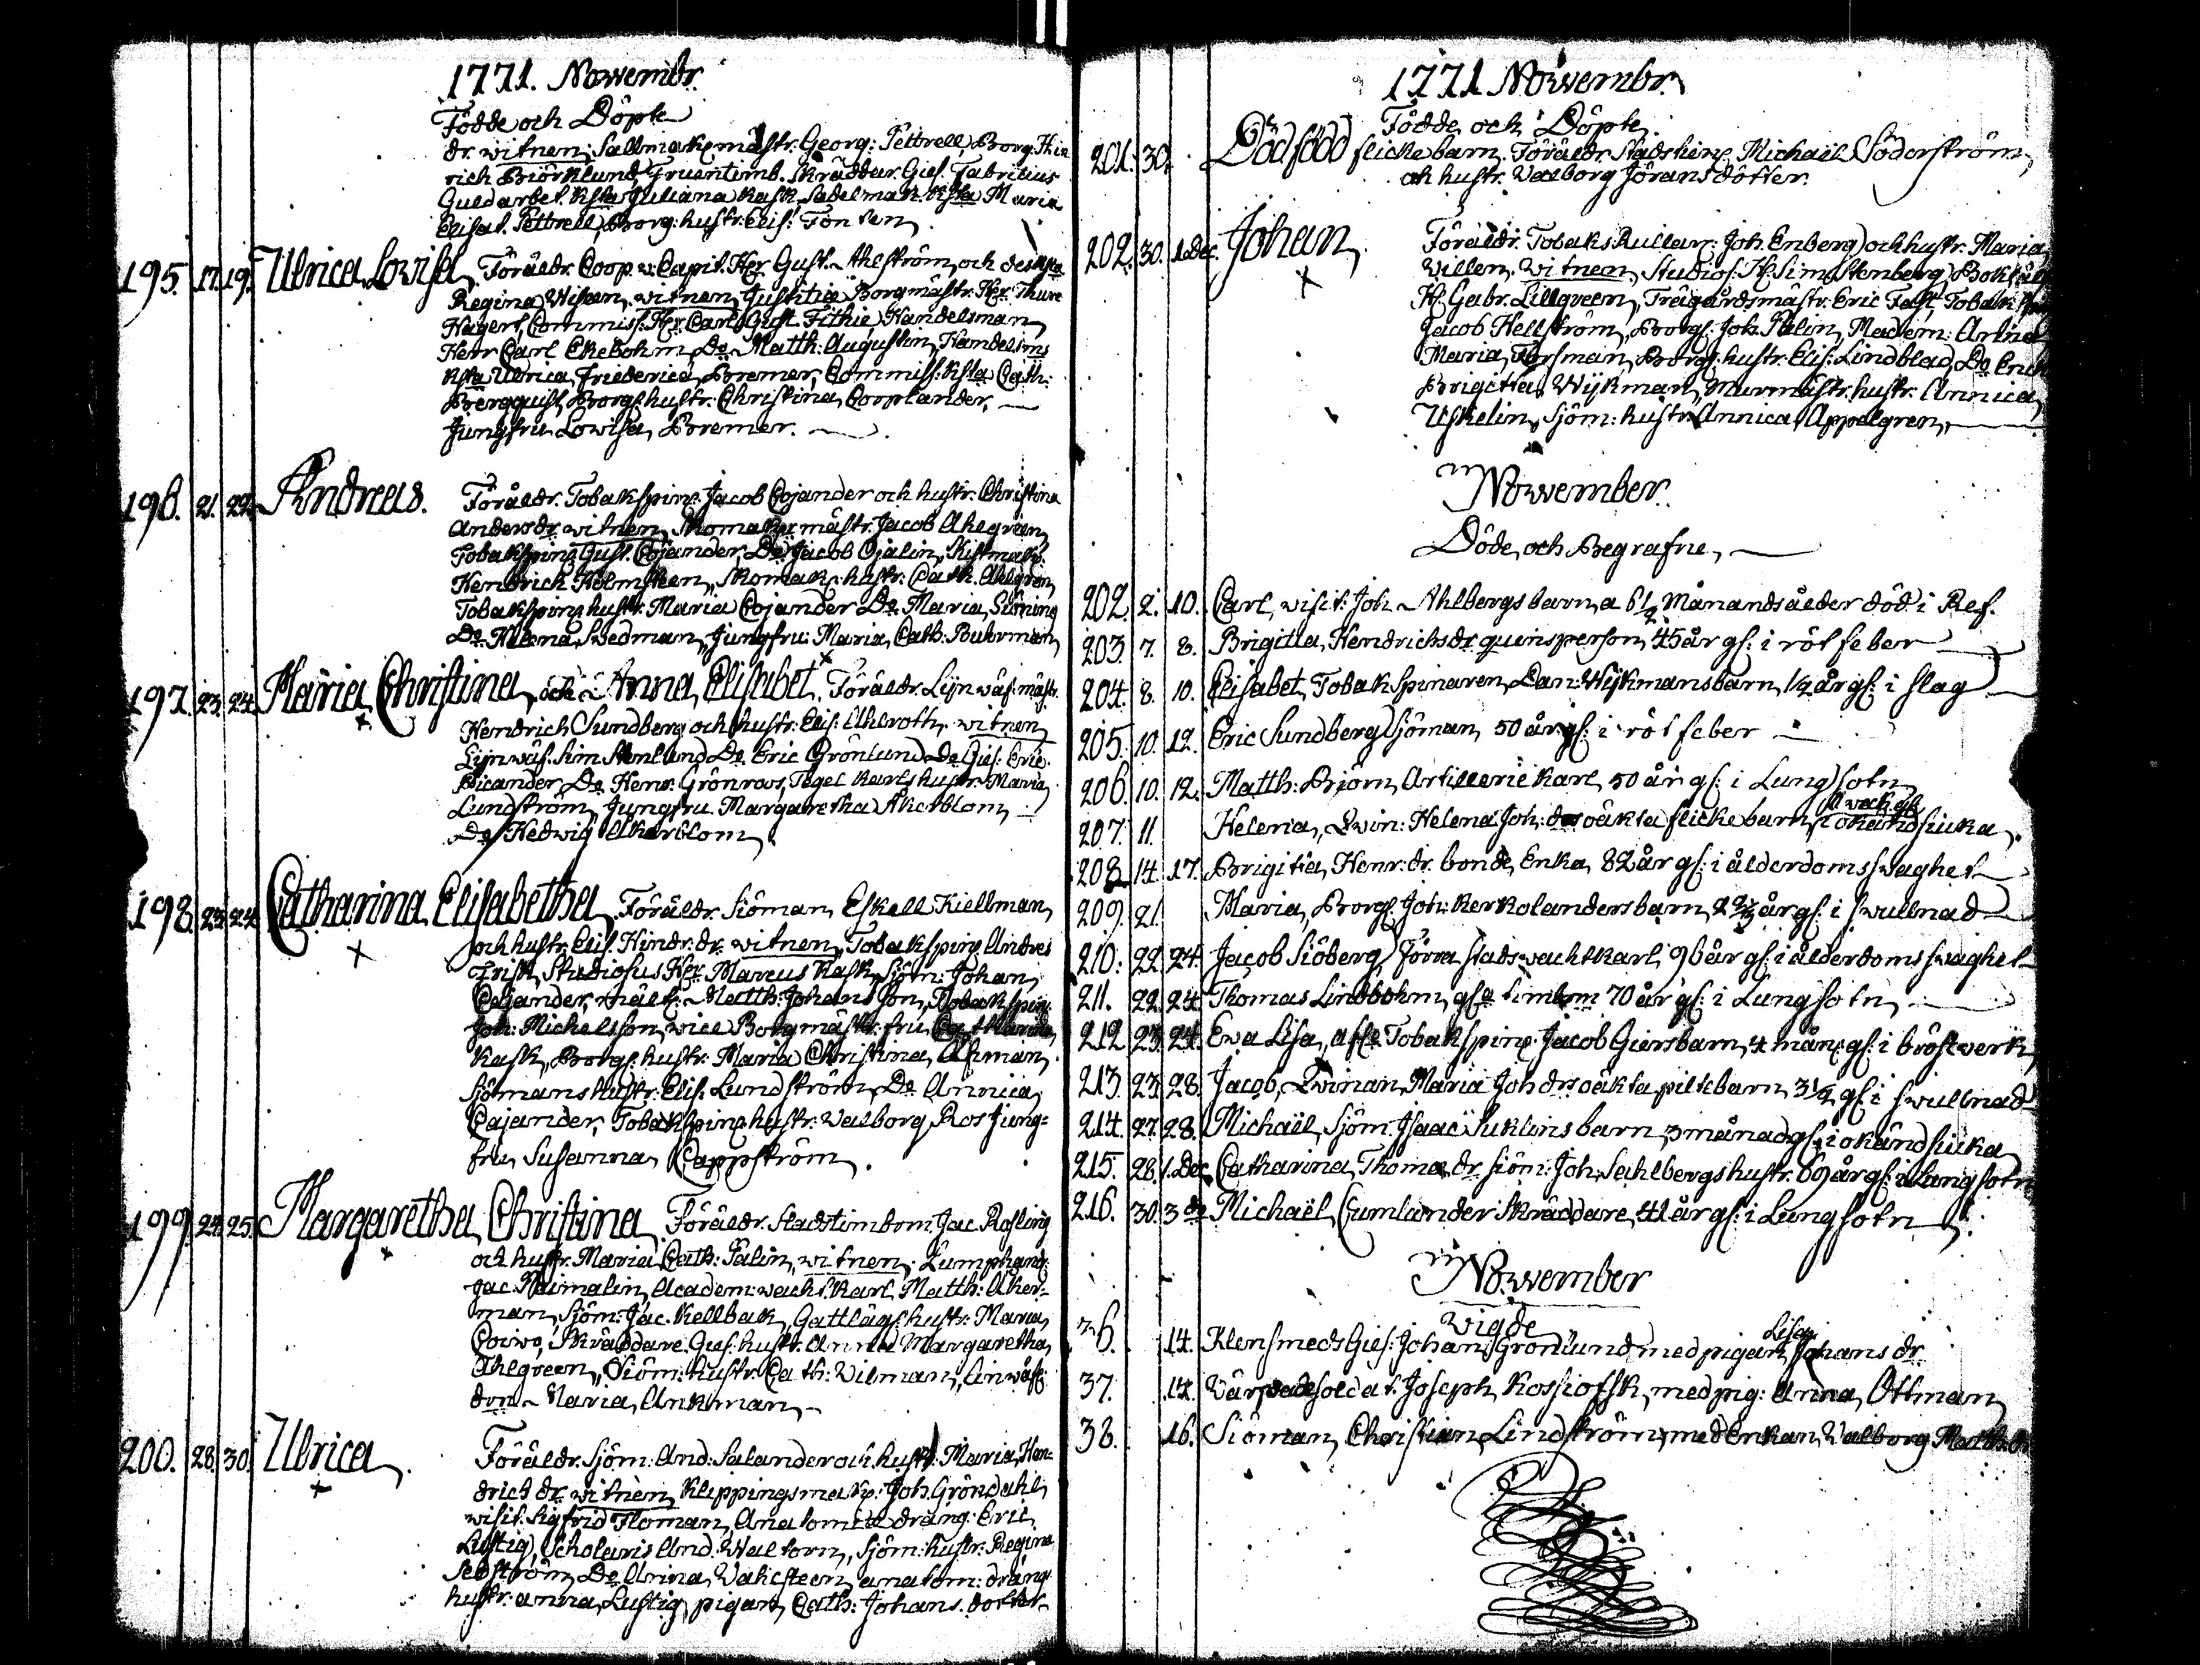 1771. Novvembr.
Födde och Döpte
dr. witnen, Sadlmak. mästr. Georg: Tettrell Borg. Hin
rich Björklund Gruentimb. Skräddar. Gies. Fabritius
Guldarbet. Ksta Juliana Kask Sadelmak. Ksta Maria
Elisab. Tettrell, Borg: hustr: Elis: Fonten
195. 17. 19. Ulrica Lovisa, Föräldr. Coop v. Capit. Her Gust. Ahlström och dess
Regina Wisan, witnen, Justitiæ Borgmästr. Her. Thure
Hagert, Commiss: Her. Carl Gust. Fithie Handelsman
Herr Carl Ekebohm Do Matth: Augustin, Handelsms
Ksta Ulrica Friederica Bremer, Commiss: Ksta Cath:
Bergquist, Borgs hustr: Christina Cooplander,
Jungfru Lovisa, Bremer.
196. 21. 22. Andreas. Föräldr. Tobakspin: Jacob Cajander och hustr. Christina
Andersdr witnen Skomakr mästr. Jacob Ahlgreen,
Tobakspinr Gust. Cojander Do Jacob Ojalin,
Hendrich Holmsten, Skomakr: hustr: Cath. Ahlgren,
Tobakspinr hustr. Maria Cojander Do Maria Sjöning
Do Helena Swedman, Jungfru: Maria Cath: Buhrman
197. 23. 24. Maria Christina och Anna Elisabet. Föräldr. Lijnwäf: mästr.
Hendrich Sundberg och hustr: Elis: Ahlroth, witnen
Lijnwäf. Sim Stenlund Do Eric Grönlund Do Gies: Eric
Bicander Do Henr: Grönroos, Tegel Karlshustr. Maria
Lundström, Jungfru Margaretha Åkerblom
Do Hedwig Åkerblom.
198. 23. 24. Catharina Elisabetha Föräldr. Siöman Eskell Kiellman
och hustr. Elis. Hindr. dr. witnen, Tobakspinr Andres
Frisk, Studiosus Her Marcus Kask, Sjöm: Johan
Cajander, mäst: Matth: Johans son, Tobakspinr
Joh: Michelsson, vice Borgmästr: fru Catharina
Kask, Borgs: hustr: Maria Christina Åhman.
Sjömans hustr: Elis: Lundström Do Annica
Cajander, Tobakspinr hustr: Walborg Ros Jung=
fru Susanna Cappström.
199. 24. 25. Margaretha Christina Föräldr. Stadstimbrm. Jac. Rosling
och hustr. Maria Cath: Palin, witnen, Lumphandl:
Jac. Raimalin Academ: wachts Karl Matth: Åker=
man, Sjöm: Jac. Kellbak, Gattlägs hustr: Maria
Corvo, Skräddare. Gies: hustr: Anna Margaretha
Ahlgreen, Siöm: hustr. Cath: Wilman, Linwäf:
drn Maria Ankman,
200. 28. 30. Ulrica. Föräldr. Sjöm: And: Salander och hustr: Maria Hen=
drich dr. witnen Klippingsmakr: Joh. Gröndahl
visit. Sigfrid Floman, Anatomiæ dräng: Eric
Lustig, Scholaris And: Waltorn, Sjöm: hustr: Regina
Seeström Do Anna, Wahlsteen, anatom: drängs
hustr: anna Lustig, pigan Cath: Johans. dotter
1771 Novvembr.
Födde och Döpte
201. 30. Dödfödd flickebarn. Föräldr. Michaël Söderström
och hustr. Walborg Jöransdotter.
202. 30. 1. Dec. Johan Föräldr. Tobaks Rullar: Joh. Enberg och hustr. Maria
Willen, witnen, Studios: H: Sim Stenberg,
H: Gabr. Lillgreen, Trägårdsmästr. Eric Fast, Tobak:
Jacob Hellström, Borgs: Joh. Palin, Madem:
Maria Forsman, Borgs: hustr. Elis: Lindblad, Do
Brigitta Wijkman, Murmästr. hustr: Annica,
Uskelin, Sjöm: hustr. Annica Appelgren,
Novvember.
Döde, och Begrafne,
202. 2. 10. Carl, visit: Joh. Ahlbergs barn, a 6 1/2 Månands ålder död i Ref.
203. 7. 8. Brigitta Hendrichsdr quinsperson, 45 år gl: i rötfeber
204. 8. 10. Elisabet, Tobakspinaren Dan: Wijkmans barn, 1/2 år gl: i slag
205. 10. 12. Eric Sundberg Sjöman, 50 år gl: i rötfeber
206 10. 12. Matth: Björn, Artillerie Karl, 50 år gl: i Lungsotn
207. 11. Helena, Qwin: Helena Joh: drs oäkta flickebarn, i okänd siuka.
208 14. 17. Brigitta, Henr: dr. bonde Enka, 82 år gl: i ålderdoms swaghet
209. 21. Maria, Borgs. Joh: Kerkolanders barn, 2 år gl: i swullnad
210: 22. 24. Jacob Siöberg, Förra stads wachtkarl, 96 år gl: i ålderdoms swaghet
211. 22. 24 Thomas Lindbohm, timbrm 70 år gl: i Lungsotn
212 23. 24. Ewa Lisa, Tobakspinr. Jacob Giers barn, 4 mån: gl: i bröstwerk
213. 23. 28. Jacob, Qwinan Maria Joh drs oäkta piltebarn, 3 1/2 gl: i swullnad
214. 27. 28. Michaël, Sjöm: Isaac Suklins barn, 3 månad gl: i okänd siuka
215. 28. 1. Dec. Catharina, Thomæ dr. siöm: Joh. Sahlbergs hustr. 69 år gl: i Lungsotn
216. 30. 3 do Michaël Gumlander Skräddare, 41 år gl: i Lungsotn
Novvember
Wigde
36. 14. Klensmeds Gies: Johan Grönlund med pigan Lisa Johans dr.
37. 14. soldat. Joseph Kossiofsk, med pig: Anna, Ottman
38. 16. Siöman Christian Lindström, med Enkan Walborg